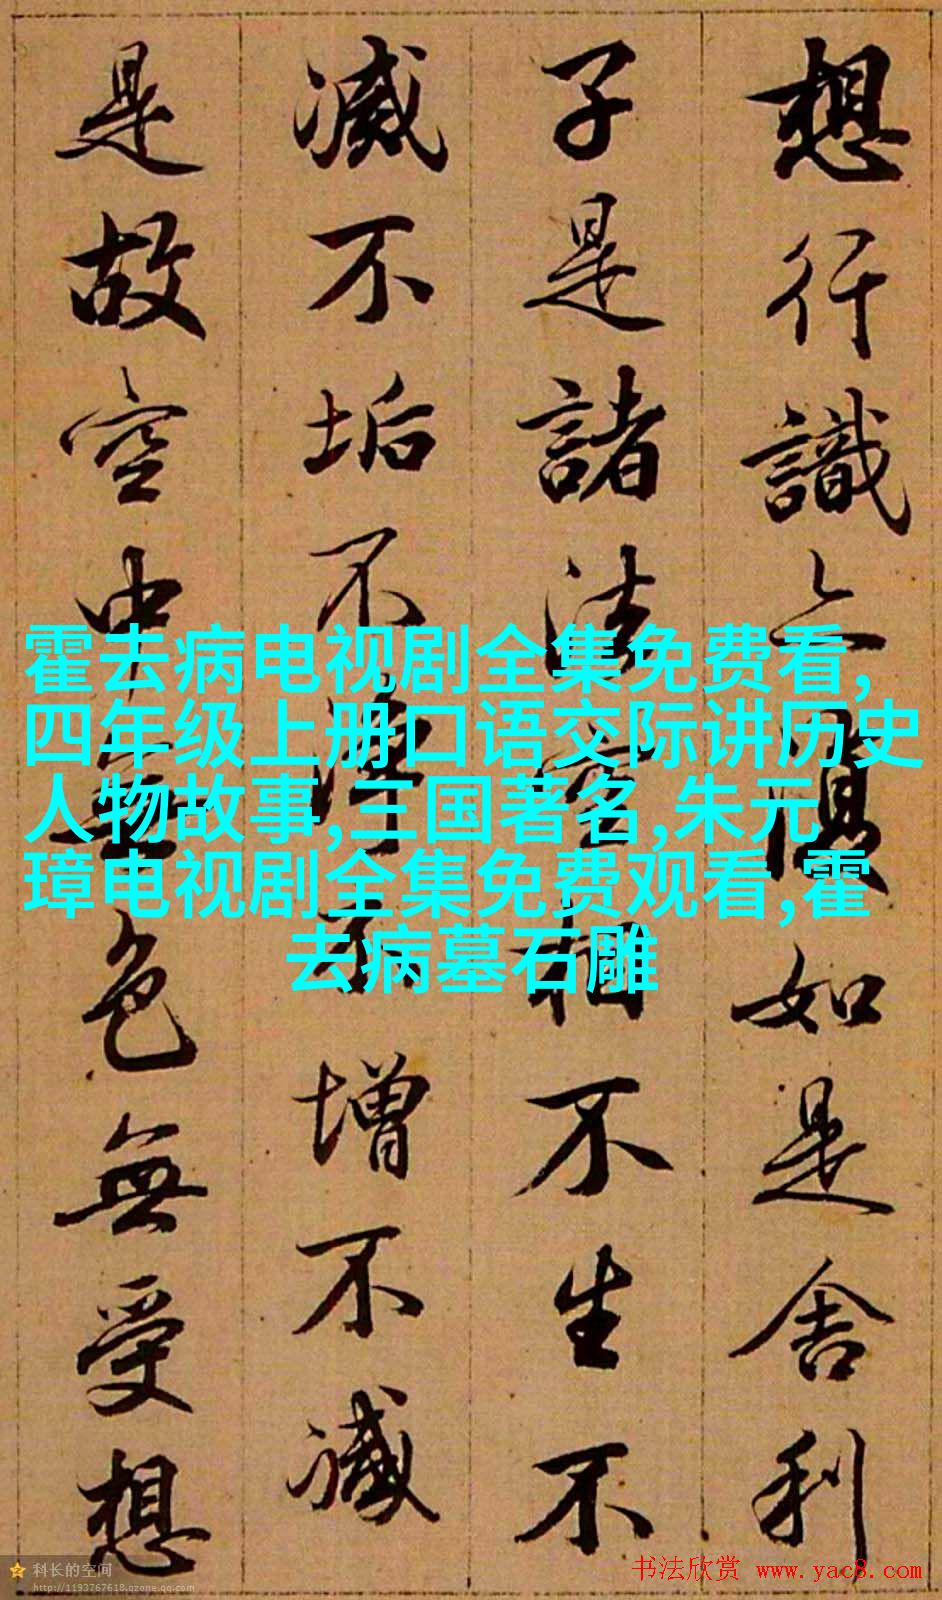 想行識亦復如是舍利
子是諸法空相不生不
滅不垢不淨不增不減
是故空中無色無受想
霍去病电视剧全集免费看,
四年级上册口语交际讲历史
人物故事,三国著名,朱元
璋电视剧全集免费观看,霍
去病墓石雕
科长的空间
http://1193767618.qzone.qq.com
书法欣赏 www.yac8.com